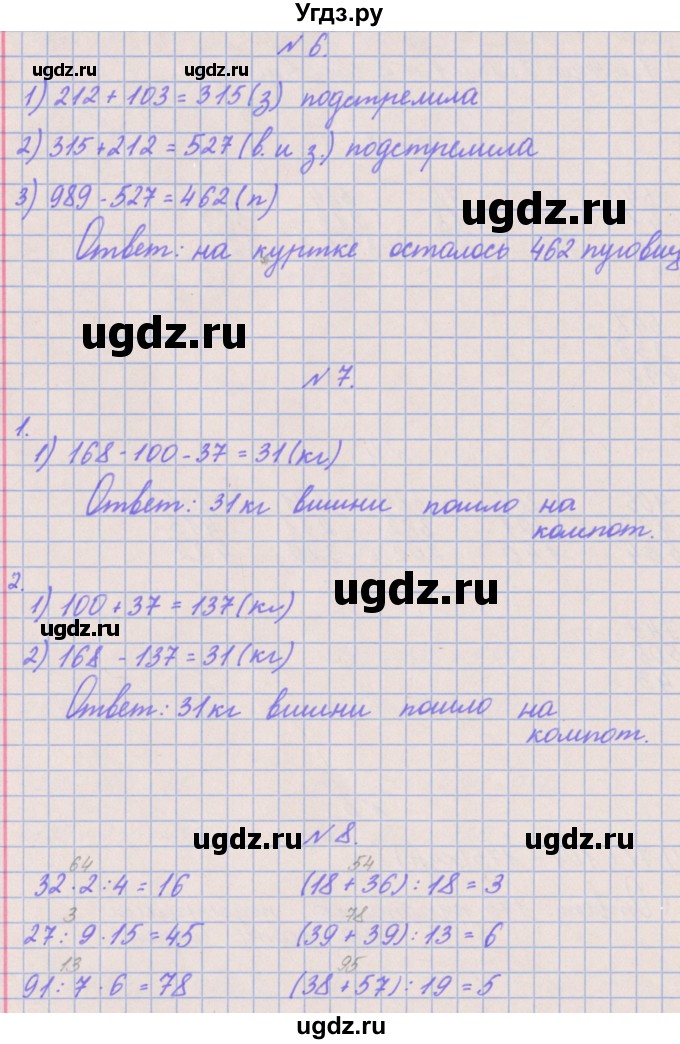 Угдз.ру
№ 6.
ugdz.ru ugdz.ru
1) 212 + 103 = 315 (з) подстрелила
2) 315 + 212 = 527 (в. и з.) подстрелила
3) 989 - 527 = 462 (п)
ugdz.ru
Ответ: на куртке осталось 462 пуговиц
ugdz.ru
№ 7.
1.
1) 168 - 100 - 37 = 31 (кг)
Ответ: 31 кг вишни пошло на
компот.
2.
1) 100 + 37 = 137 (кг)
ugdz.ru
ugdz.ru
2) 168 - 137 = 31 (кг)
Ответ: 31 кг вишни пошло на
компот.
№ 8.
ugdz.ru ugdz.ru
64 54
32 · 2 : 4 = 16 (18 + 36) : 18 = 3
3 78
27 : 9 · 15 = 45 (39 + 39) : 13 = 6
13 95
91 : 7 · 6 = 78 (38 + 57) : 19 = 5
ugdz.ru